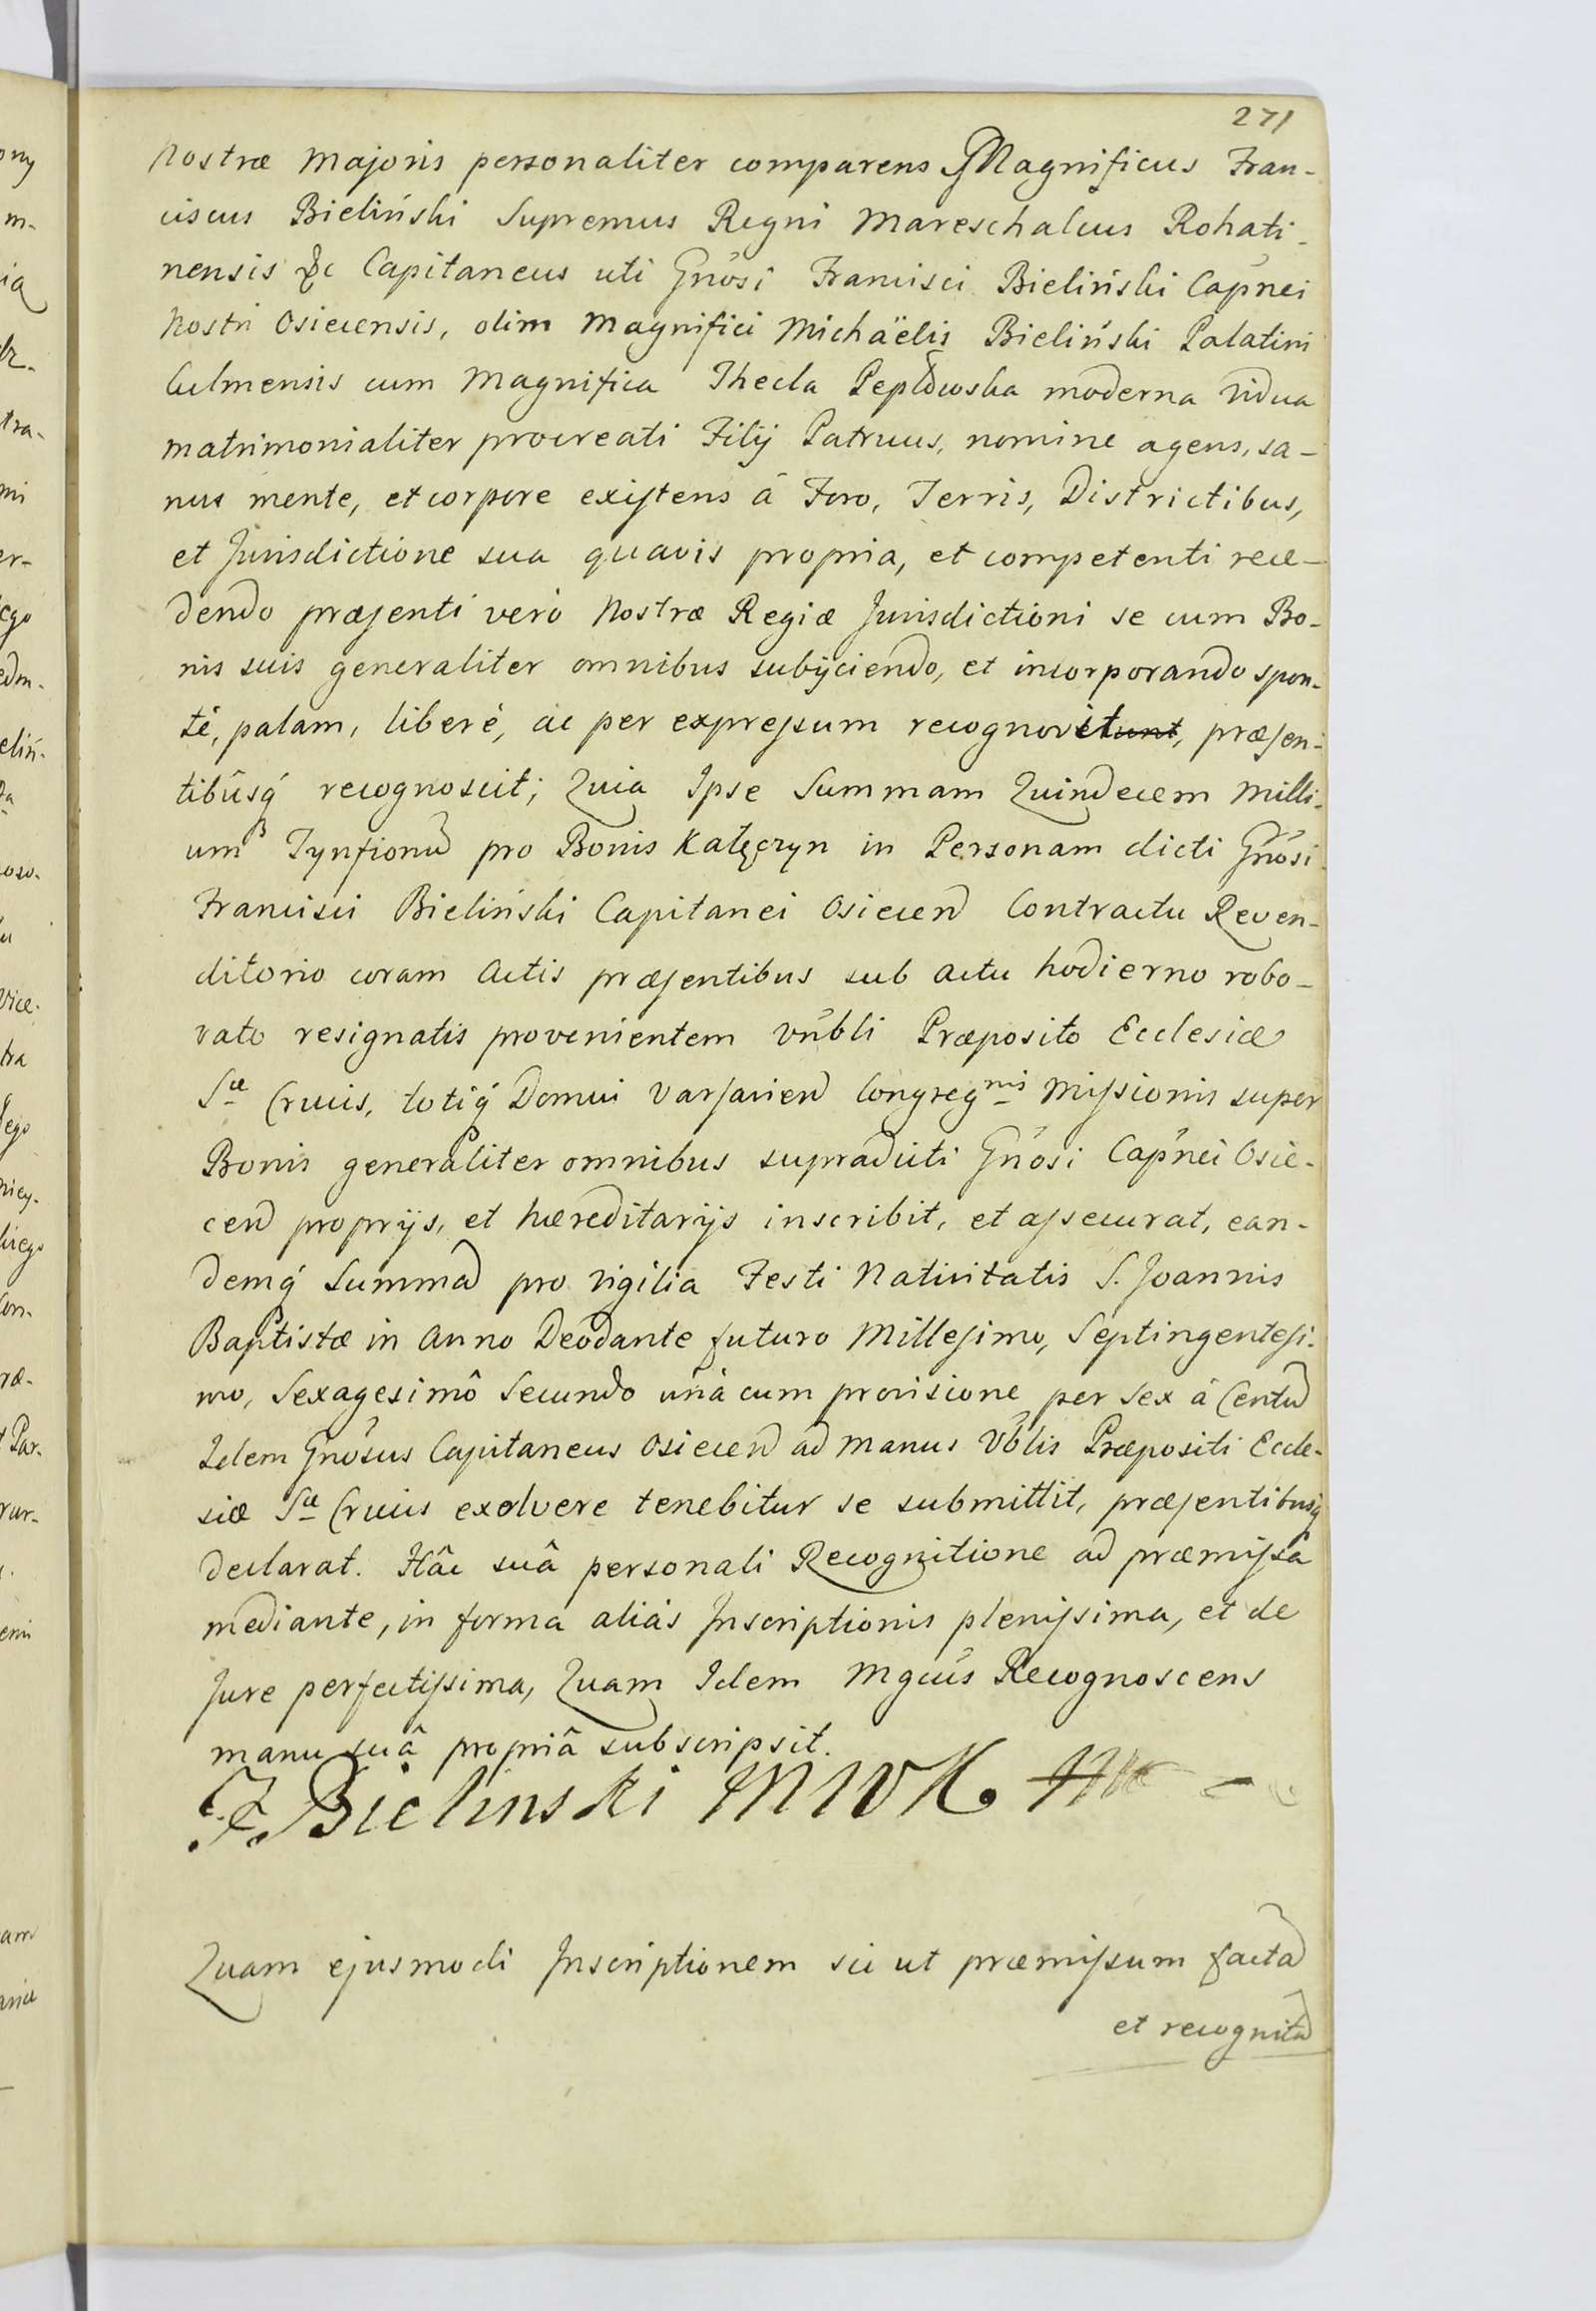 271
Nostræ Majoris personaliter comparens Magnificus Fran-
ciscus Bieliński Supremus Regni Mareschalcus Rohati-
nensis &c Capitaneus uti Gnosi Francisci Bieliński Capnei
Nostri Osiecensis, olim Magnifici Michäelis Bieliński Palatini
Culmensis cum Magnifica Thecla Pepłowska moderna Vidua
matrimonialiter procreati Filij Patruus, nomine agens, sa-
nus mente, et corpore existens á Foro, Terris, Districtibus,
et Jurisdictione sua quavis propria, et competenti rece-
dendo præsenti verò Nostræ Regiæ Jurisdictioni se cum Bo-
nis suis generaliter omnibus subijciendo, et incorporando spon-
tè, palam, liberè, ac per expressum recognovit, præsen-
tibûsq́ recognoscit; Quia Ipse Summam Quindecem Milli-
um Tynfionu pro Bonis Kałęczyn in Personam dicti Gnósi
Francisci Bieliński Capitanei Osiecen Contractu Reven-
ditorio coram Actis præsentibus sub actu hodierno robo-
rato resignatis provenientem Vnbli Præposito Ecclesiæ
Sæ Crucis, totiq́ Domui Varsavien Congregnis Missionis super
Bonis generaliter omnibus supradicti Gnósi Capnéi Osie-
cen proprijs, et hæreditarijs inscribit, et assecurat, ean-
demq́ Summa pro Vigilia Festi Nativitatis S. Joannis
Baptistæ in Anno Deodante futuro Millesimo, Septingentesi-
mo, Sexagesimô Secundo unà cum provisione per Sex á Centu
Idem Gnosus Capitaneus Osiecen ad manus Vblis Præpositi Eccle-
siæ Sæ Crucis exolvere tenebitur se submittit, præsentibusq́
declarat. Hâc suâ personali Recognitione ad præmissa
mediante, in forma aliàs Inscriptionis plenissima, et de
Jure perfectissima, Quam Idem Mgcus Recognoscens
manu suâ propriâ subscripsit.
F. Bielinski MWK
Quam ejusmodi Inscriptionem sic ut præmissum facta
et recognita